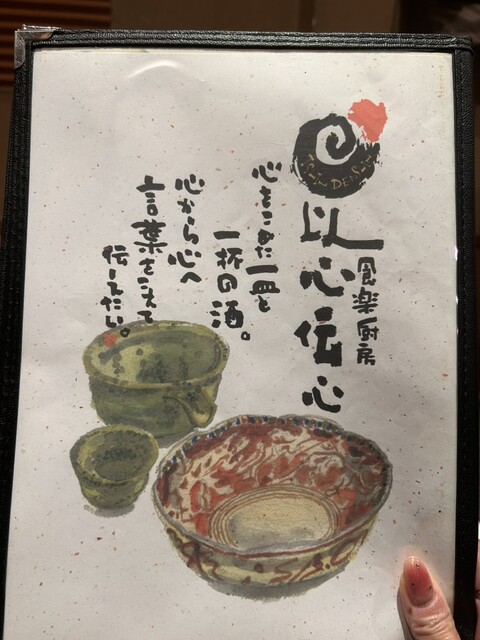 食楽厨房
以心伝心
心をこめた一皿と
一杯の酒。
心から心へ
言葉をこえて
伝えたい。